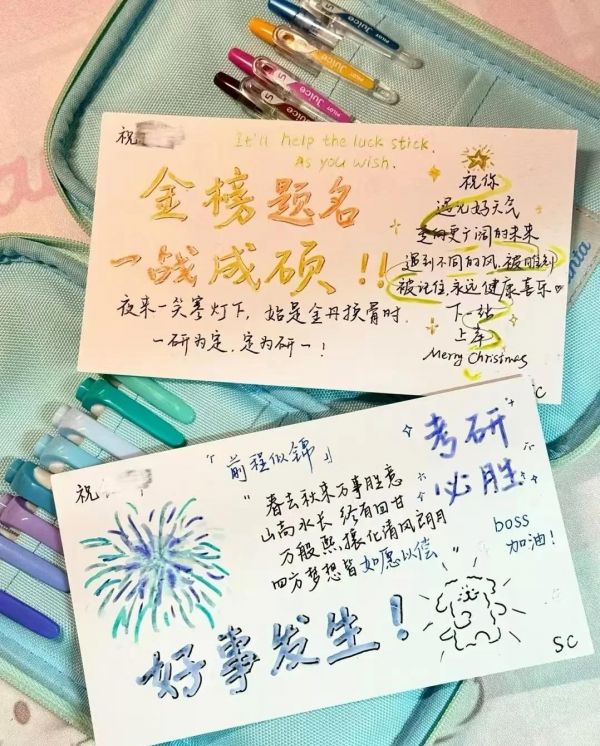 祝
It'll help the luck stick.
As you wish.
金榜题名
一战成硕!!
夜来一笑寒灯下，始是金丹换骨时.
一研为定，定为研一！
祝你
遇见好天气
走向更广阔的未来
遇到不同的风，被眷顾
被记住，永远健康喜乐
下一站
上岸
Merry Christmas
SC
祝
「前程似锦」
考研
必胜
"春去秋来万事胜意
山高水长 终有回甘
万般熙攘化清风朗月
四方梦想皆如愿以偿"
boss
加油！
好事发生！
SC
PILOT Juice
PILOT Juice
PILOT Juice
Juice